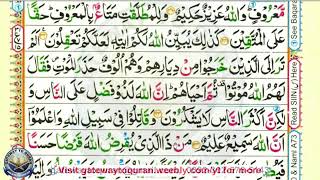 مَّعْرُوْفٍ ؕ وَاللّٰهُ عَزِيْزٌ حَكِيْمٌ وَلِلْمُطَلَّقٰتِ مَتَاعٌۢ بِالْمَعْرُوْفِ ؕ حَقًّا
عَلَى الْمُتَّقِيْنَ كَذٰلِكَ يُبَيِّنُ اللّٰهُ لَكُمْ اٰيٰتِهٖ لَعَلَّكُمْ تَعْقِلُوْنَ
اَلَمْ تَرَ اِلَى الَّذِيْنَ خَرَجُوْا مِنْ دِيَارِهِمْ وَهُمْ اُلُوْفٌ حَذَرَ الْمَوْتِ فَقَالَ
لَهُمُ اللّٰهُ مُوْتُوْا ثُمَّ اَحْيَاهُمْ ؕ اِنَّ اللّٰهَ لَذُوْ فَضْلٍ عَلَى النَّاسِ وَ
لٰكِنَّ اَكْثَرَ النَّاسِ لَا يَشْكُرُوْنَ وَقَاتِلُوْا فِيْ سَبِيْلِ اللّٰهِ وَاعْلَمُوْۤا
اَنَّ اللّٰهَ سَمِيْعٌ عَلِيْمٌ مَنْ ذَا الَّذِيْ يُقْرِضُ اللّٰهَ قَرْضًا حَسَنًا
Visit gatewaytoquran.weebly.com/y17 for more